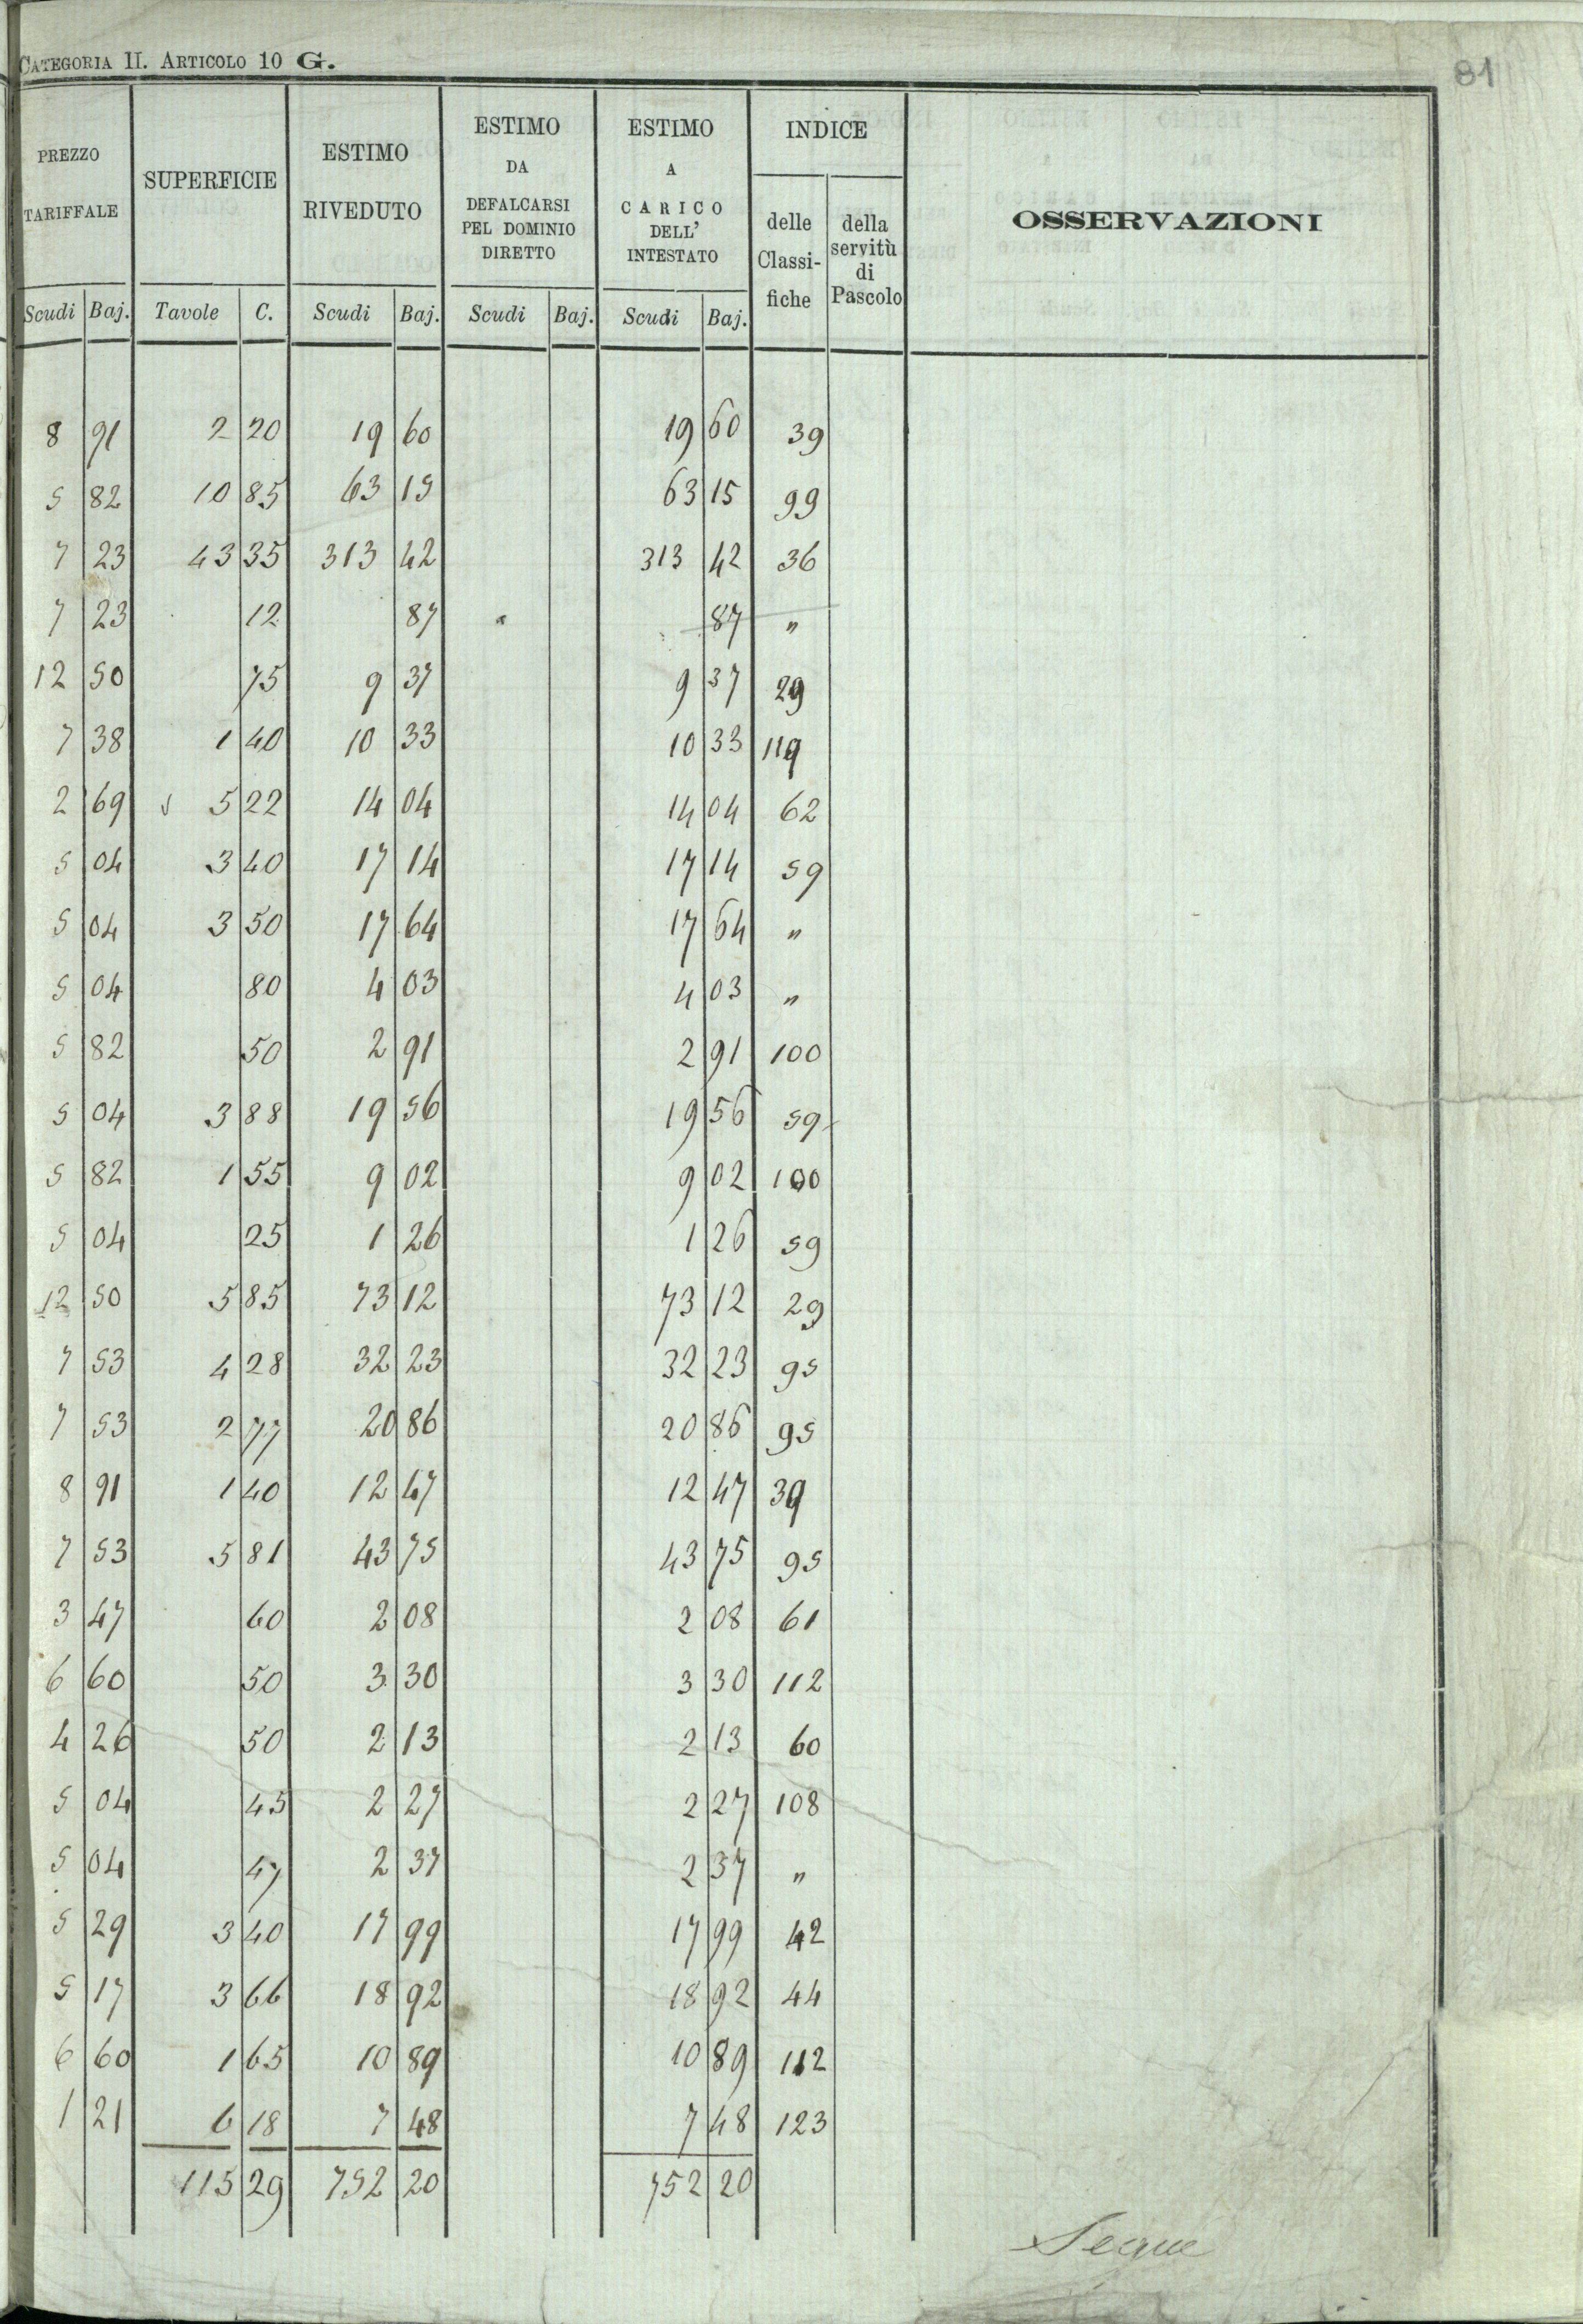 CATEGORIA II. ARTICOLO 10 G.
81
PREZZO TARIFFALE | SUPERFICIE | ESTIMO RIVEDUTO | ESTIMO DA DEFALCARSI PEL DOMINIO DIRETTO | ESTIMO A CARICO DELL' INTESTATO | INDICE | OSSERVAZIONI
delle Classifiche | della servitù di Pascolo
Scudi | Baj. | Tavole | C. | Scudi | Baj. | Scudi | Baj. | Scudi | Baj.
8 91 2 20 19 60 19 60 39
5 82 10 85 63 15 63 15 99
7 23 43 35 313 42 313 42 36
7 23 12 87 87 "
12 50 75 9 37 9 37 29
7 38 1 40 10 33 10 33 119
2 69 5 22 14 04 14 04 62
5 04 3 40 17 14 17 14 59
5 04 3 50 17 64 17 64 "
5 04 80 4 03 4 03 "
5 82 50 2 91 2 91 100
5 04 3 88 19 56 19 56 59
5 82 1 55 9 02 9 02 100
5 04 25 1 26 1 26 59
12 50 5 85 73 12 73 12 29
7 53 4 28 32 23 32 23 95
7 53 2 77 20 86 20 86 95
8 91 1 40 12 47 12 47 39
7 53 5 81 43 75 43 75 95
3 47 60 2 08 2 08 61
6 60 50 3 30 3 30 112
4 26 50 2 13 2 13 60
5 04 45 2 27 2 27 108
5 04 47 2 37 2 37 "
5 29 3 40 17 99 17 99 42
5 17 3 66 18 92 18 92 44
6 60 1 65 10 89 10 89 112
1 21 6 18 7 48 7 48 123
115 29 752 20 752 20
Segue